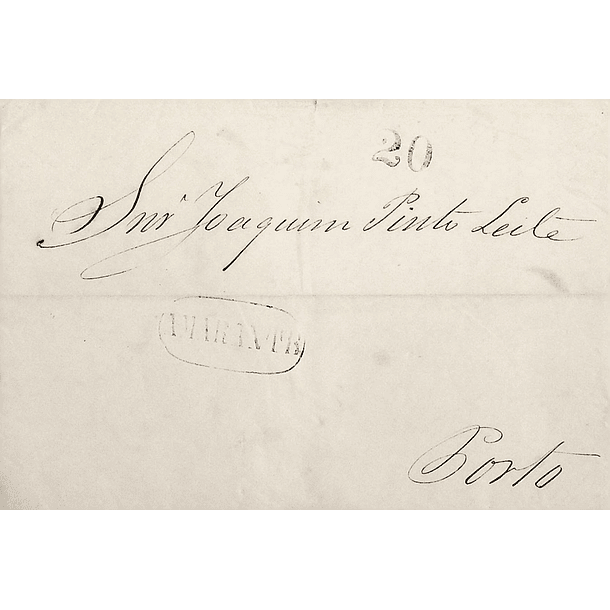 20
Snr Joaquim Pinto Leite
AMARANTE
Porto